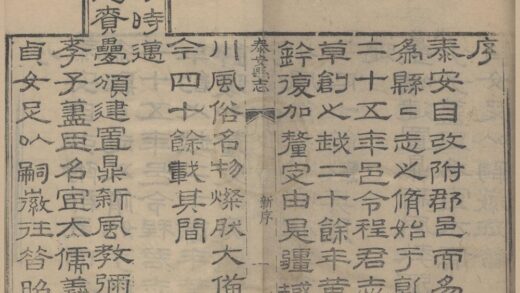 序
泰安自改附郡邑而易
為縣〻志之脩始于乾
二十五年邑令程君志
草創之越二十餘年黃
鈐復加釐定由是疆域
泰安縣志
新序
一
川風俗名物燦然大備
今四十餘載其間
時邁
賚疊頒建置鼎新風教彌
孝子藎臣名宦大儒義
貞女足以嗣徽往昔